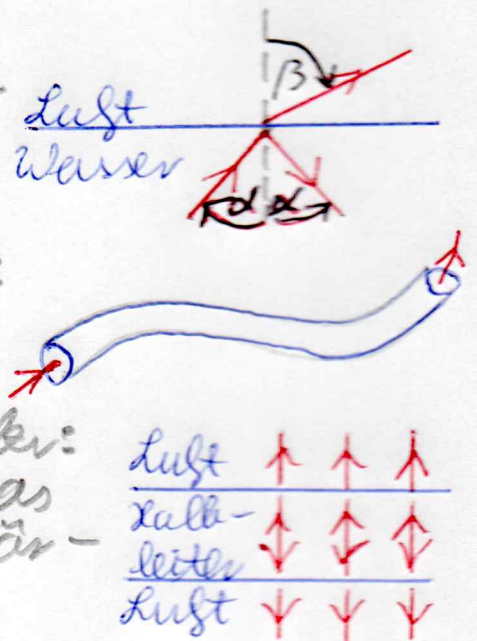 β
Luft
Wasser
α α
Luft
as
Halb-
leiter
Luft